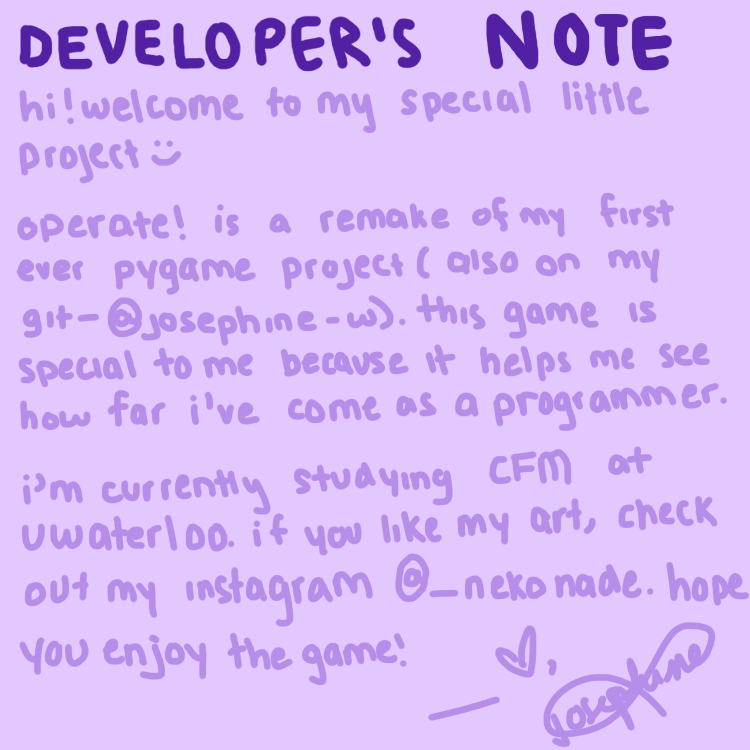 DEVELOPER'S NOTE
hi! welcome to my special little
project :)
operate! is a remake of my first
ever pygame project (also on my
git-@josephine-w). this game is
special to me because it helps me see
how far i've come as a programmer.
i'm currently studying CFM at
uwaterloo. if you like my art, check
out my instagram @_nekonade. hope
you enjoy the game!
— ♡, josephine